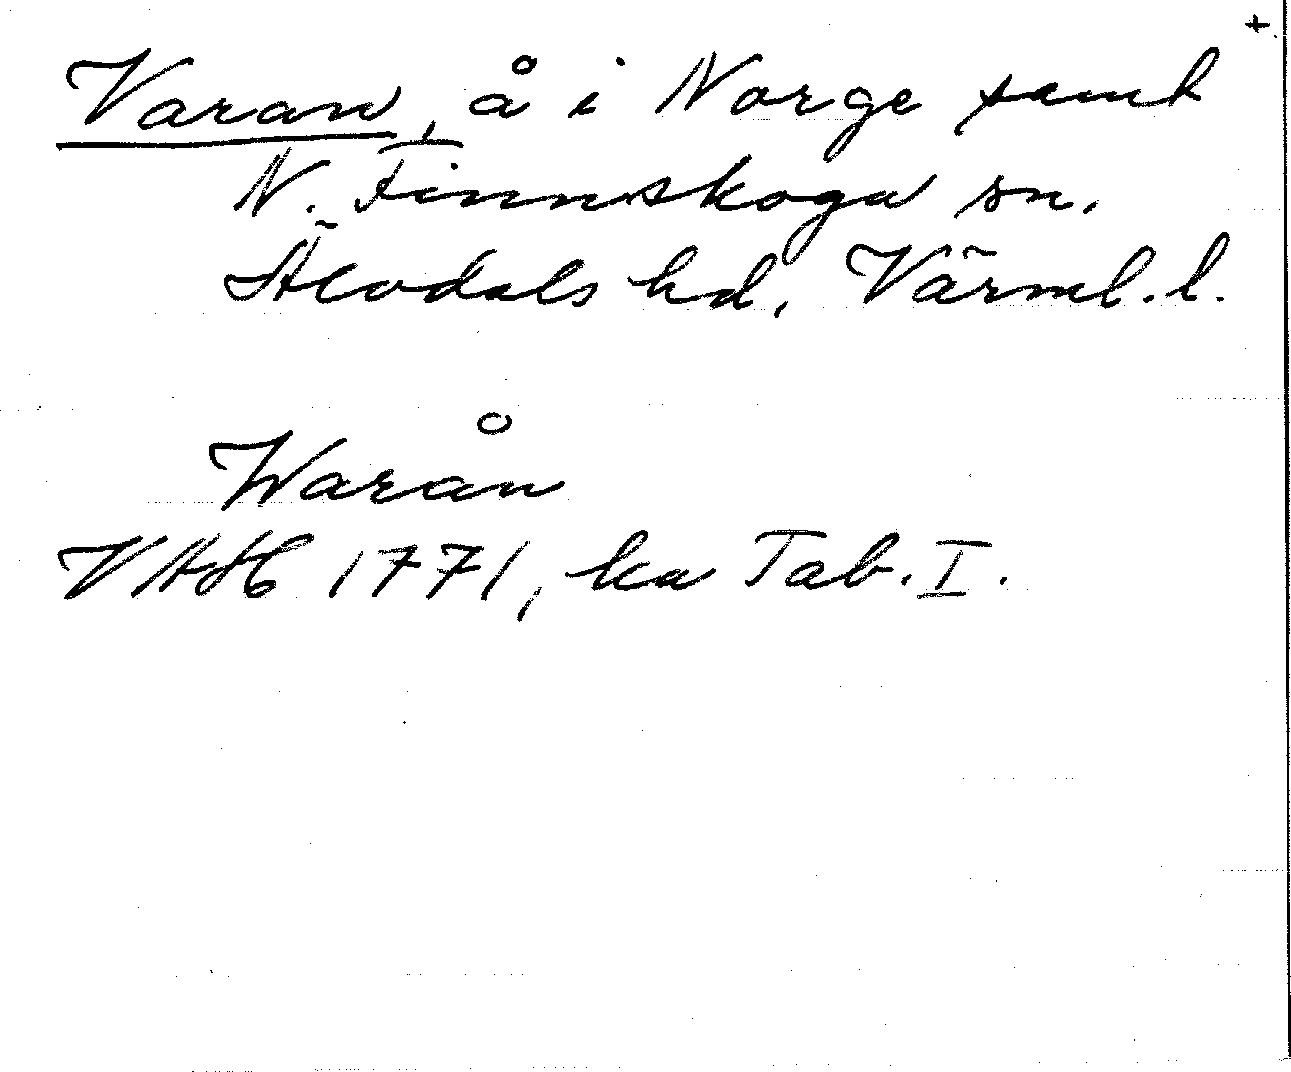 +
Varan, å i Norge samt
N. Finnskoga sn.
Älvdals hd, Värml. l.
Warån
VAH 1771, ka Tab. I.